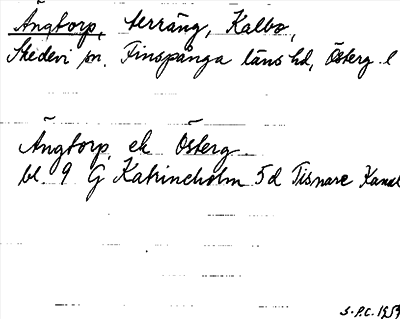 Ängtorp, terräng, Kalbo,
Skedevi sn. Finspånga läns hd, Österg. l
Ängtorp, ek Österg
bl. 9 G Katrineholm 5d Tisnare Kanal
S.P.C. 1959